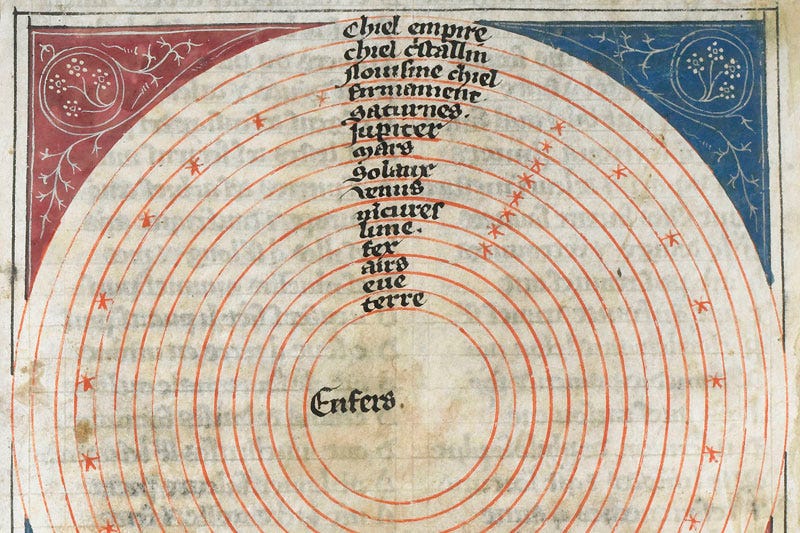 chiel empire
chiel cstallin
nouisme chiel
firmament
Saturnes.
Jupiter
mars
Solaux
venus
mcures
lune.
fex
airs
eue
terre
Enfers.